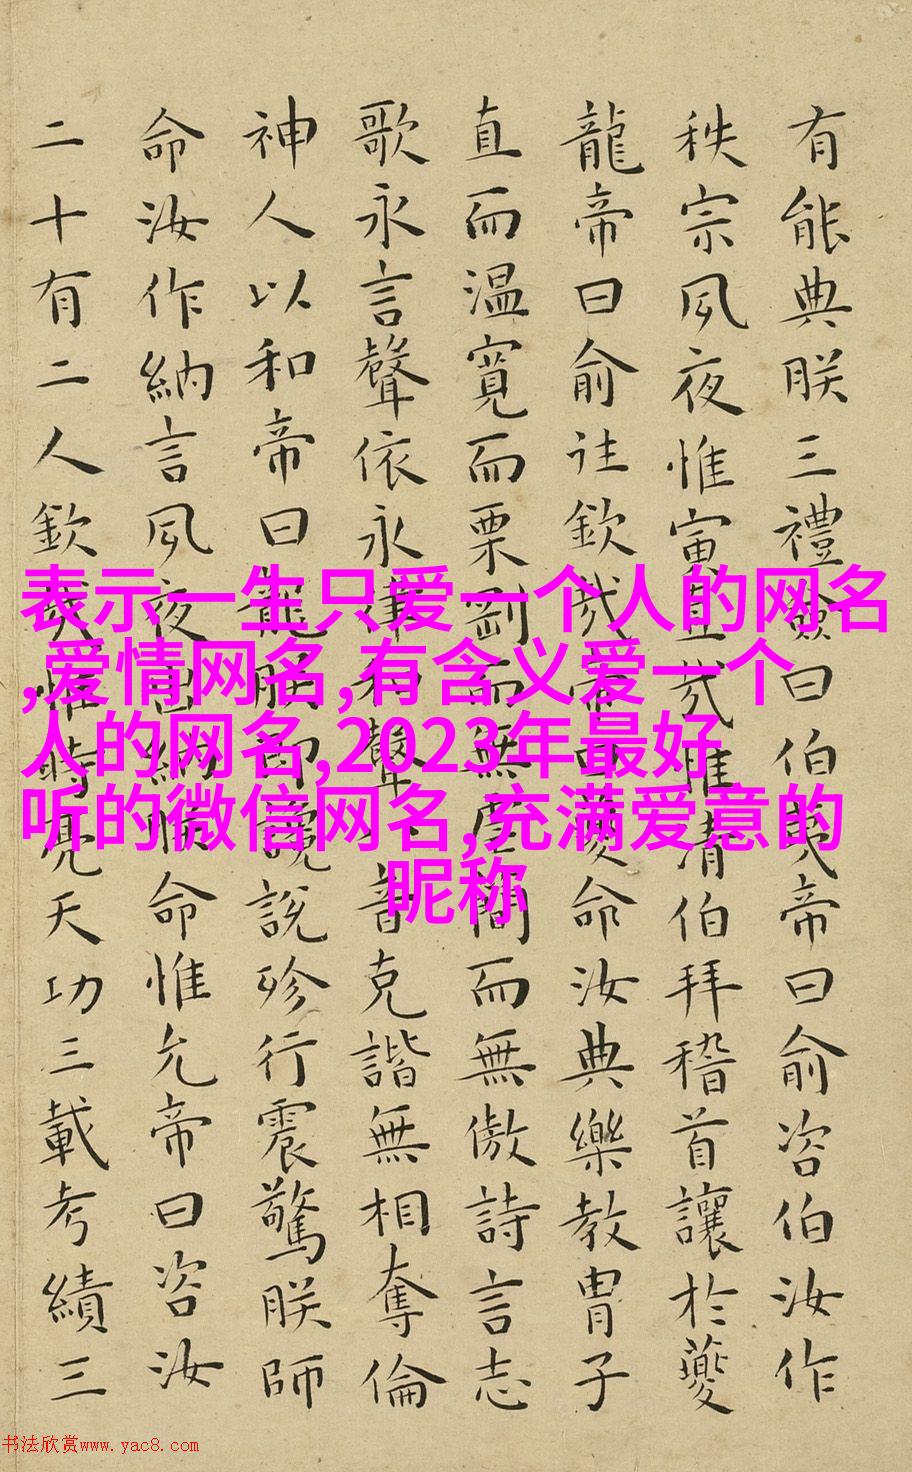 有能典朕三禮僉曰伯夷帝曰俞咨伯汝作
秩宗夙夜惟寅直哉惟清伯拜稽首讓於夔
龍帝曰俞往欽哉帝曰夔命汝典樂教胄子
直而温寬而栗剛而無虐簡而無傲詩言志
歌永言聲依永律和聲八音克諧無相奪倫
神人以和帝曰龍朕堲讒說殄行震驚朕師
命汝作納言夙夜出納朕命惟允帝曰咨汝
二十有二人欽哉惟時亮天功三載考績三
表示一生只爱一个人的网名
,爱情网名,有含义爱一个
人的网名,2023年最好
听的微信网名,充满爱意的
昵称
书法欣赏www.yac8.com